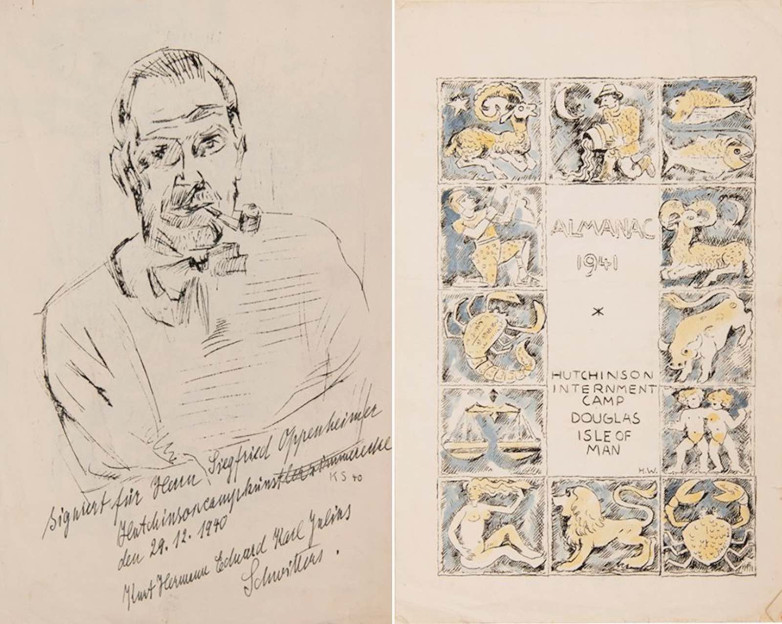 Signiert für Herrn Siegfried Oppenheimer
KS 40
den 29.12.1940
Kurt Hermann Eduard Karl Julius
Schwitters.
ALMANAC
1941
*
HUTCHINSON
INTERNMENT
CAMP
DOUGLAS
ISLE OF
MAN
H.W.